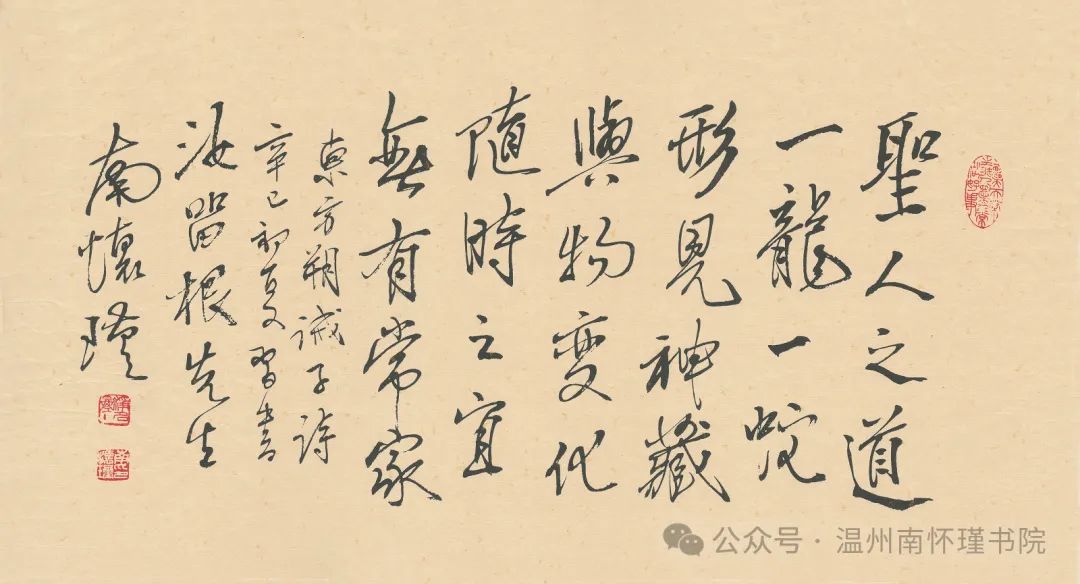 聖人之道
一龍一蛇
形見神藏
與物变化
隨時之宜
無有常家
東方朔诫子詩
辛已初夏習書
汝留根先生
南懷瑾
公众号·温州南怀瑾书院